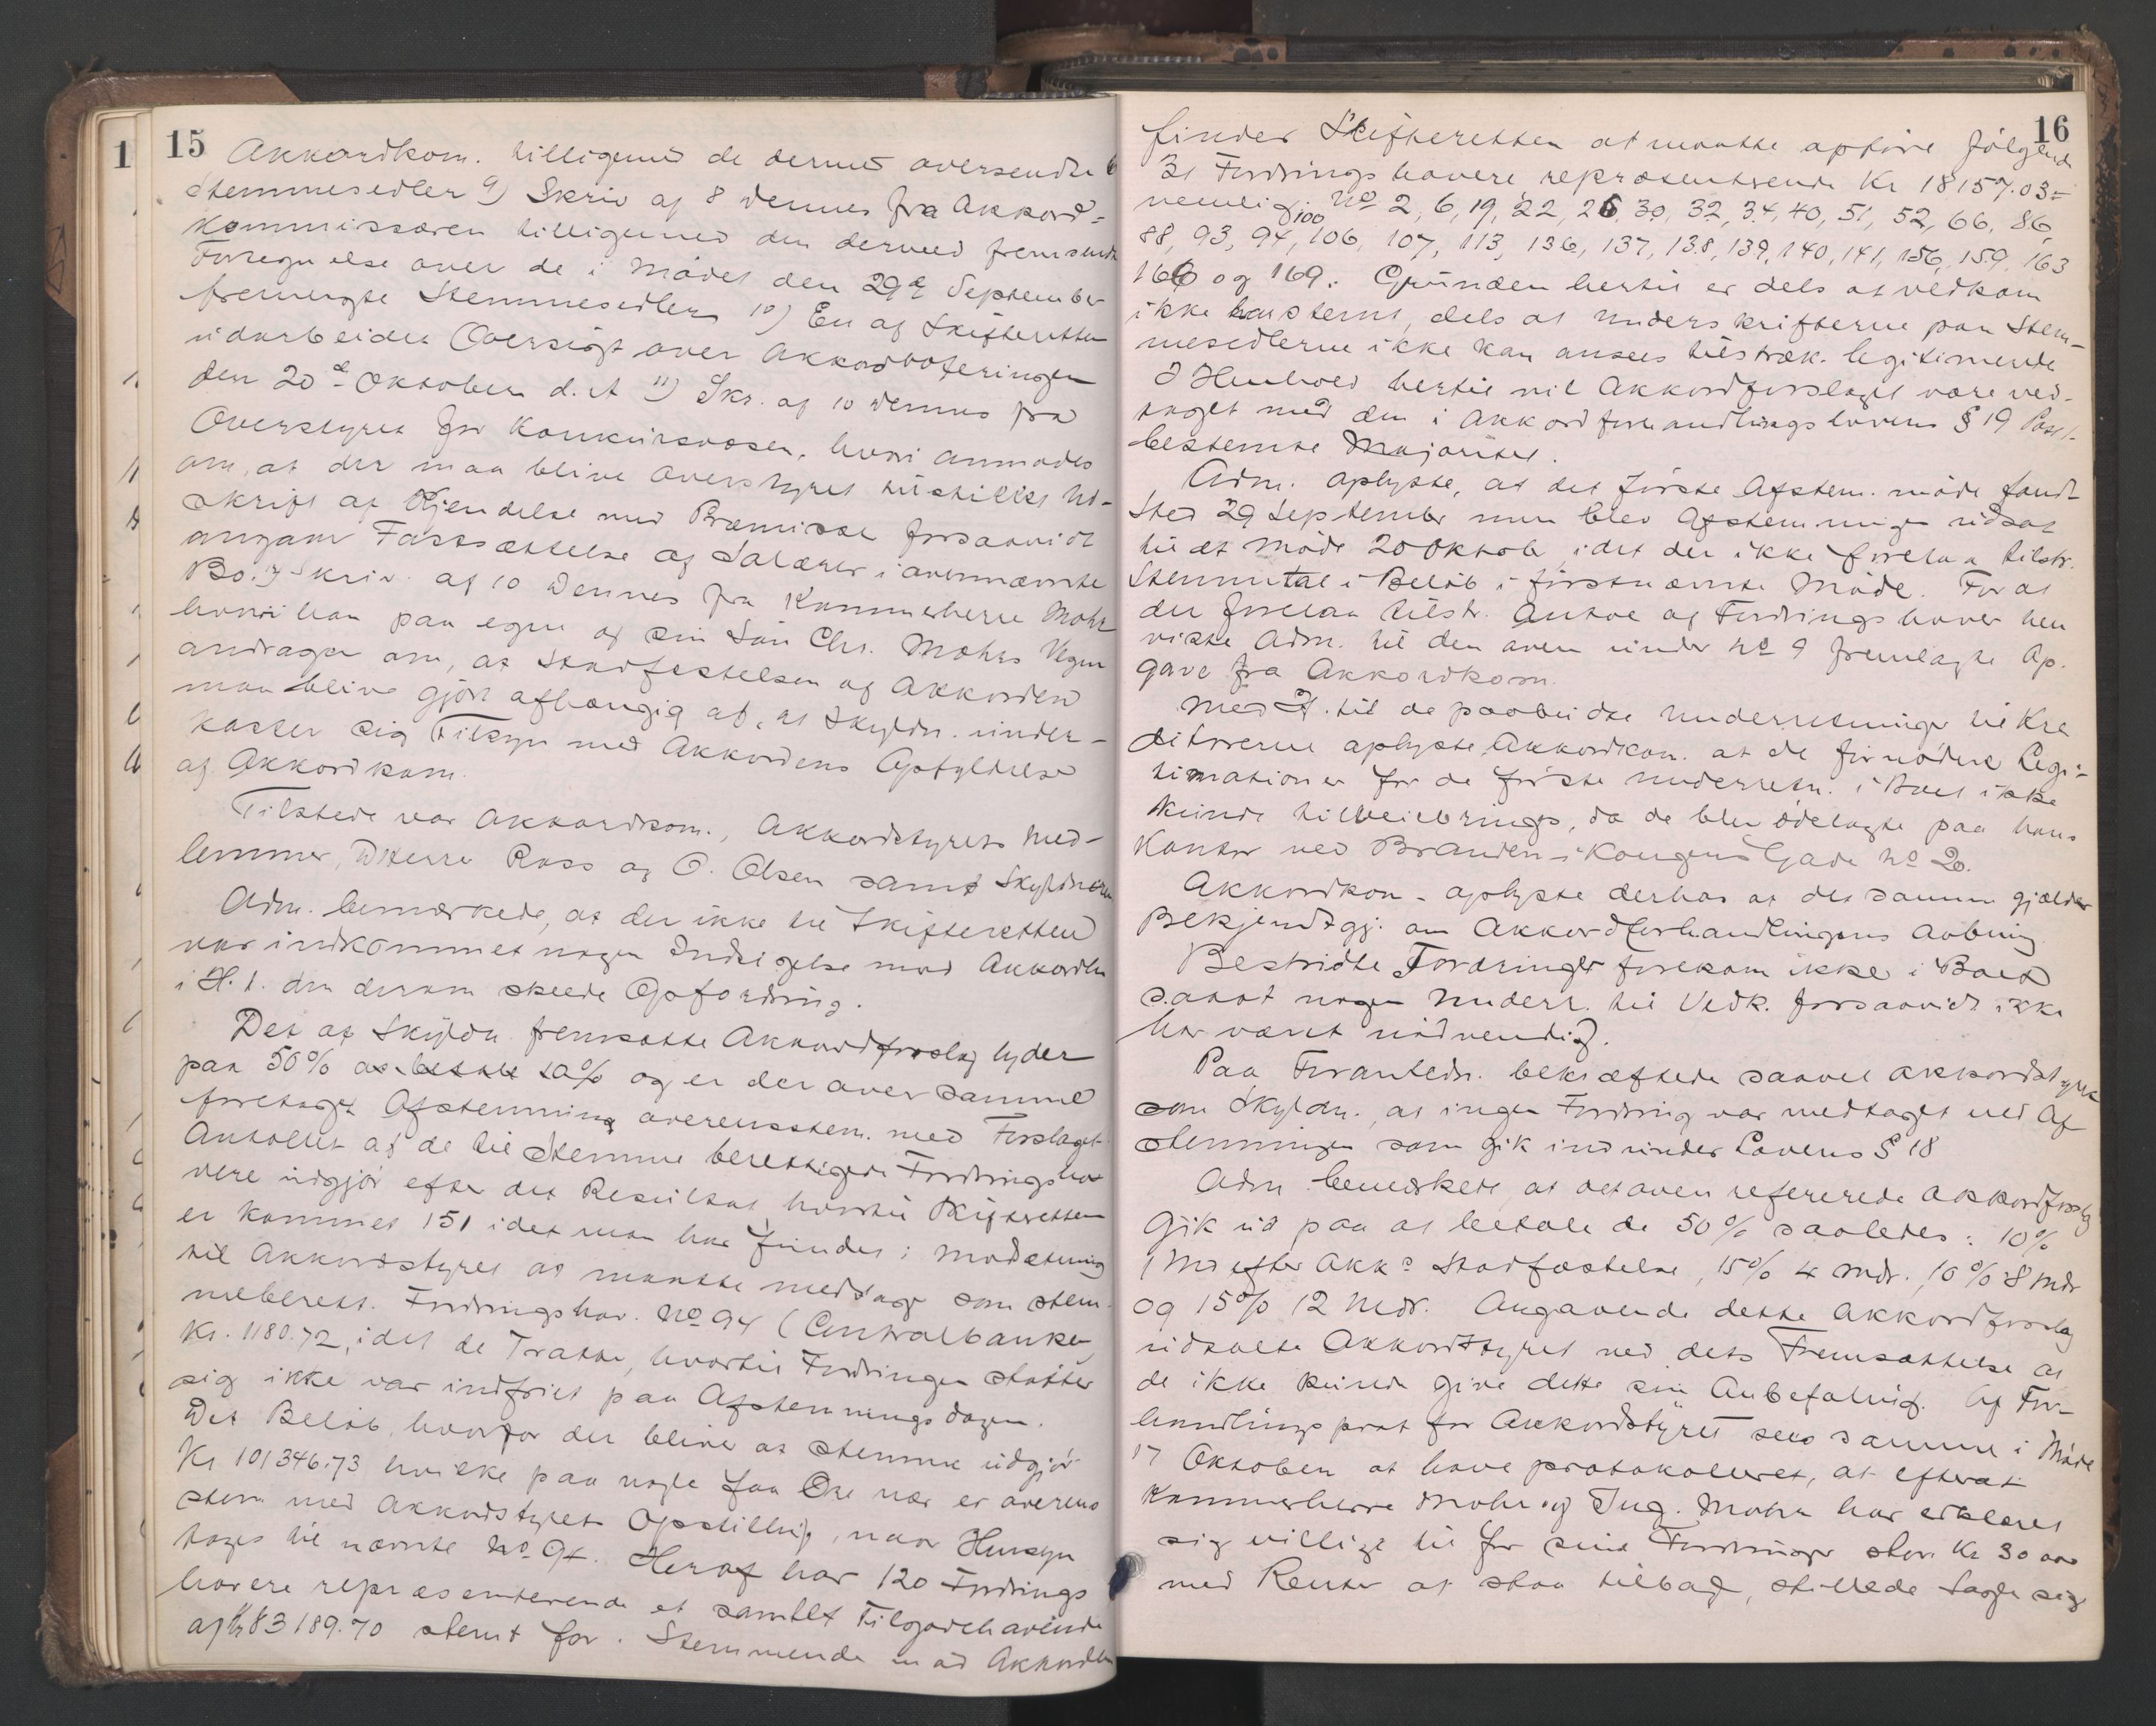 15
Akkordkom. tilligemed de dermed oversendte 6
Stemmesedler 9) Skriv af 8 dennes fra Akkord-
kommissæren tilligemed den derved fremsendte
Fortegnelse over de i Mødet den 29de September
fremlagte Stemmesedler 10) En af Skifteretten
udarbeidet Oversigt over Akkordvoteringen
den 20de Oktober d. A 11) Skr. af 10 dennes fra
Overstyret for Konkursvæsen, hvori anmodes
om, at der maa blive Overstyret tilstillet Ud-
skrift af Kjendelse med Præmisser forsaavidt
angaar Fastsættelse af Salærer i ovennævnte
Bo. Skriv. af 10 dennes fra Kammerherre Mohr
hvori han paa egne og sin Søn Chr. Mohrs Vegne
andrager om, at Stadfæstelsen af Akkorden
maa blive gjort afhængig af, at Skyldn. under-
kaster sig Tilsyn med Akkordens Opfyldelse
af Akkordkom.
Tilstede var Akkordkom., Akkordstyrets Med-
lemmer, D'Herrer Ross og O. Olsen samt Skyldneren
Adm. bemærkede, at der ikke til Skifteretten
var indkommet nogen Indsigelse mod Akkorden
i H. t. den derom skeede Opfordring.
Det af Skyldn. fremsatte Akkordforslag lyder
paa 50% og er der over samme
foretaget Afstemning overensstem. med Forslaget
Antallet af de til Stemme berettigede Fordringsha-
vere udgjør efter det Resultat hvortil Skifteretten
er kommet 151 idet man har fundet i Modsætning
til Akkordstyret at maatte medtage som stem-
meberett. Fordringshav. No 94 (Centralbanken
Kr. 1180.72, idet de Tratter, hvortil Fordringen støtter
sig ikke var indfriet paa Afstemningsdagen.
Det Beløb, hvorfor der bliver at stemme udgjør
Kr 101346.73 hvilke paa nogle faa Øre nær er overens
stem med Akkordstyrets Opstilling, naar Hensyn
tages til nævnte No 94. Heraf har 120 Fordrings
havere repræsenterende et samlet Tilgodehavende
af Kr 83189.70 stemt for. Stemmende mod Akkorden
16
finder Skifteretten at maatte opføre følgende
31 Fordringshavere repræsenterende Kr 18157.03-
nemlig: No 2, 6, 19, 22, 26, 30, 32, 34, 40, 51, 52, 66, 86,
88, 93, 94, 100, 106, 107, 113, 136, 137, 138, 139, 140, 141, 156, 159, 163
166 og 169. Grunden hertil er dels at vedkom
ikke har stemt, dels at Underskrifterne paa Stem-
mesedlerne ikke kan ansees tilstræk. legitimerede
I Henhold hertil vil Akkordforslaget være ved-
taget med den i Akkordforhandlingslovens § 19 Post 1.
bestemte Majoritet.
Adm. oplyste, at det første Afstem. møde fandt
Sted 29 September men blev Afstemningen udsat
til et Møde 20 Oktober, idet der ikke forelaa tilstr.
Stemmetal i Beløb i førstnævnte Møde. For at
der forelaa tilstr. Antal af Fordringshaver hen
viste Adm. til den oven under No 9 fremlagte Op-
gave fra Akkordkom.
Med H. til de paabudte Underretninger til Kre
ditorerne oplyste Akkordkom. at de fornødne Legi-
timationer for de første Underretn. i Boet ikke
kunde tilveiebringes, da de blev ødelagte paa hans
Kontor ved Branden i Kongens Gade No 20.
Akkordkom. oplyste derhos at det samme gjælder
Bekjendtgj. om Akkordforhandlingens Aabning
Bestridte Fordringer forekom ikke i Boet
saaat nogen Underr. til Vedk. forsaavidt ikke
har været nødvendig.
Paa Foranledn. bekræftede saavel Akkordstyret
som Skyldn., at ingen Fordring var medtaget ved Af
stemningen som gik ind under Lovens § 18
Adm bemærkede at det oven refererede Akkordforslag
gik ud paa at betale de 50% saaledes: 10%
1 Md efter Akk.s Stadfæstelse, 15% 4 Mdr., 10% 8 Mdr
og 15% 12 Mdr. Angaaende dette Akkordforslag
udtalte Akkordstyret ved dets Fremsættelse at
de ikke kunde give dette sin Anbefaling. Af For-
handlingsprot for Akkordstyret sees samme i Møde
17 Oktober at have protokolleret, at efterat
Kammerherre Mohr og Ing. Mohr har erklæret
sig villige til for sine Fordringer stor Kr 30 000
med Renter at staa tilbage, stillede Sagen sig